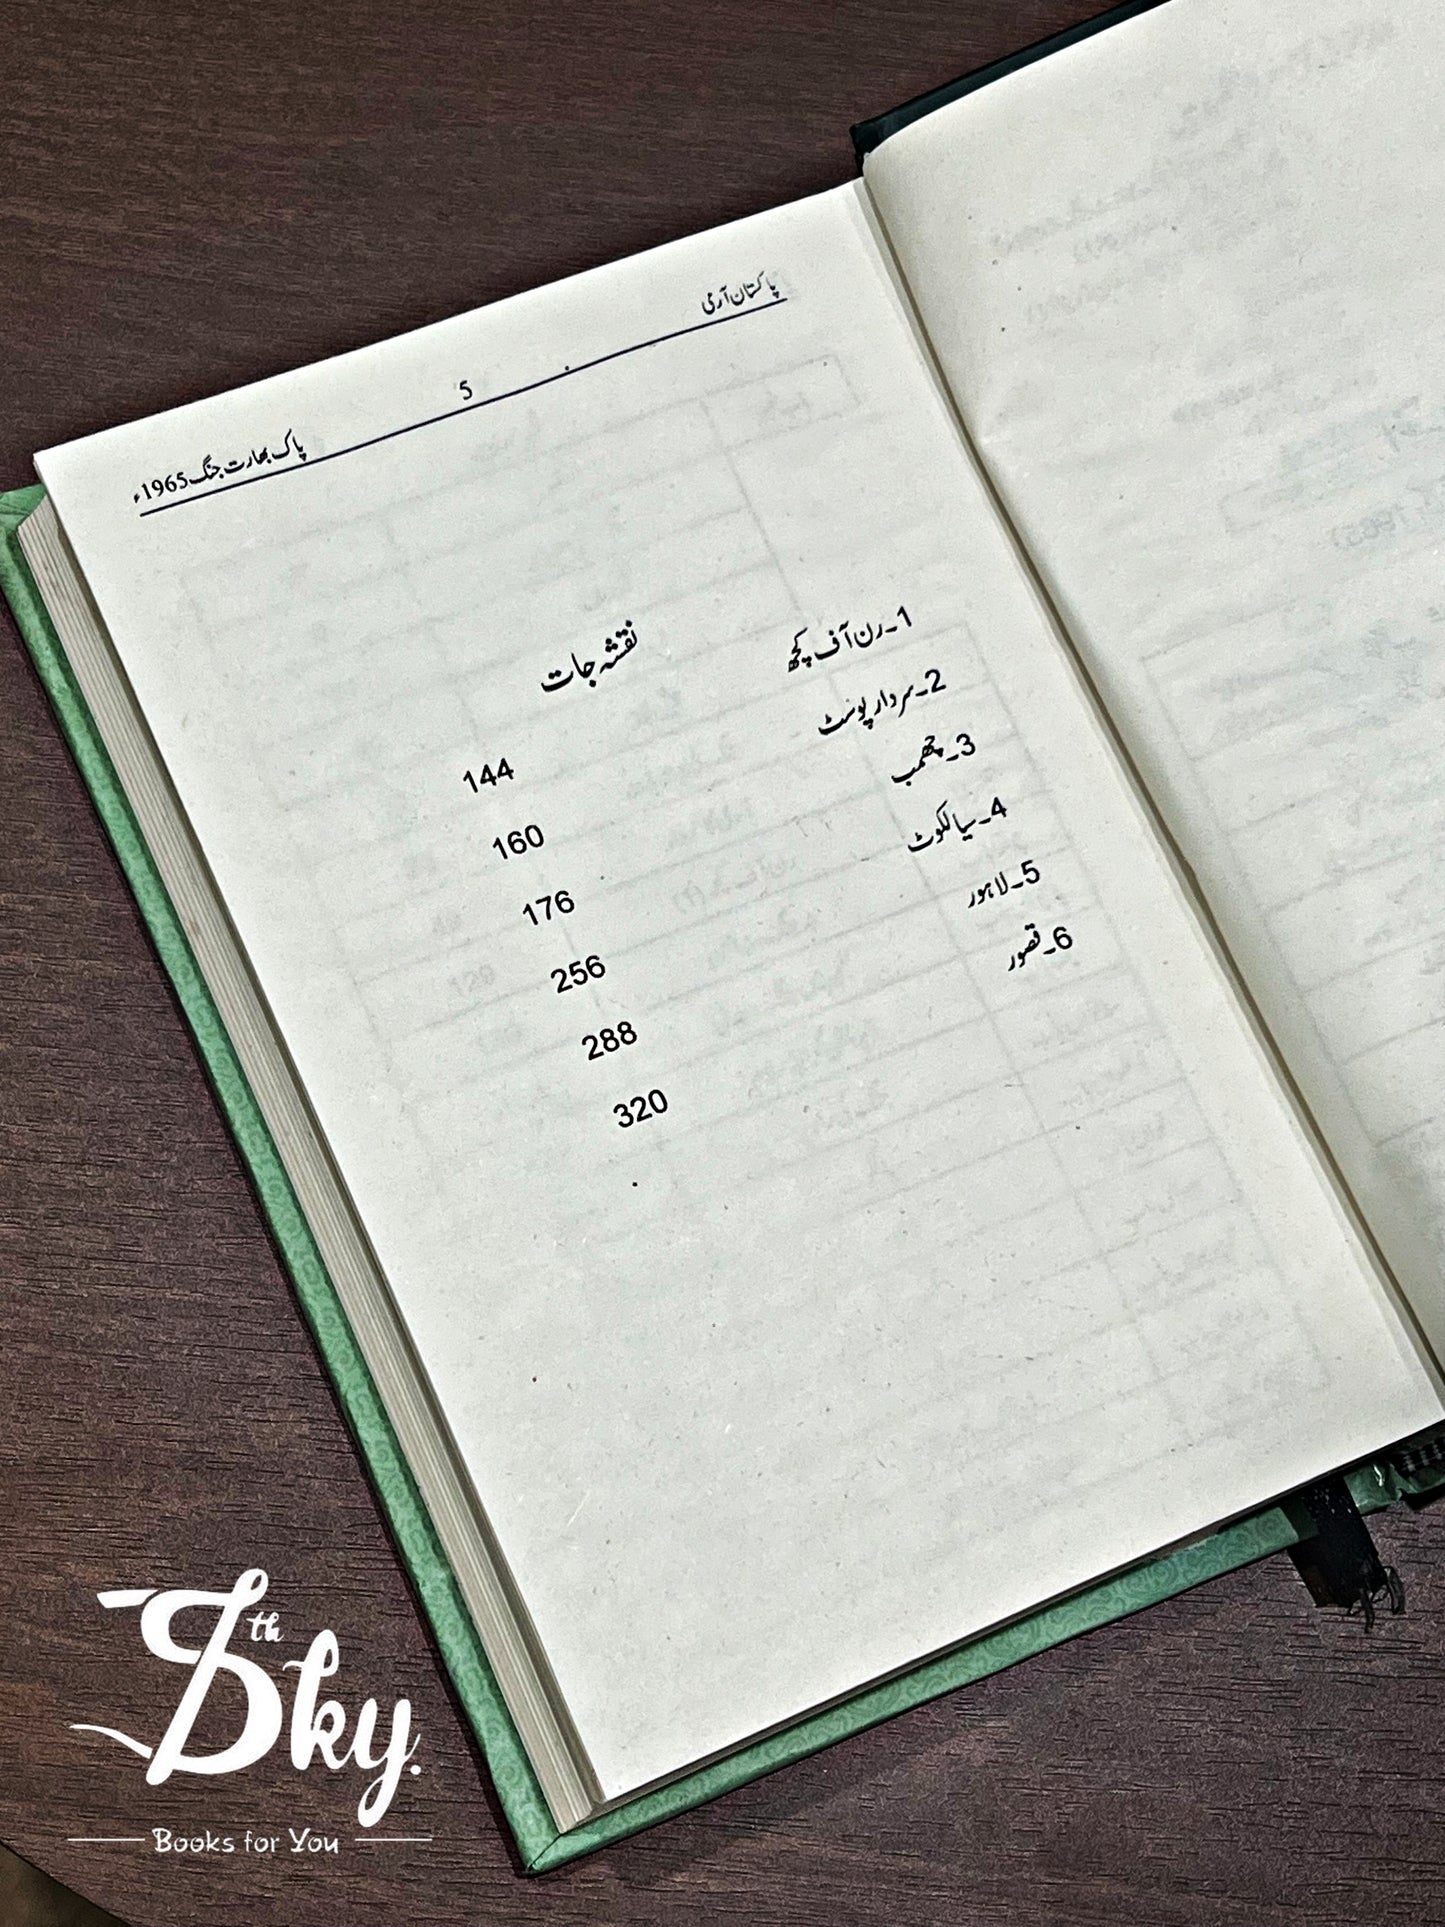 پاکستان آرمی
5
پاک بھارت جنگ 1965ء
نقشہ جات
1۔ رن آف کچھ 144
2۔ سردار پوسٹ 160
3۔ چھمب 176
4۔ سیالکوٹ 256
5۔ لاہور 288
6۔ قصور 320
7th Sky.
Books for You